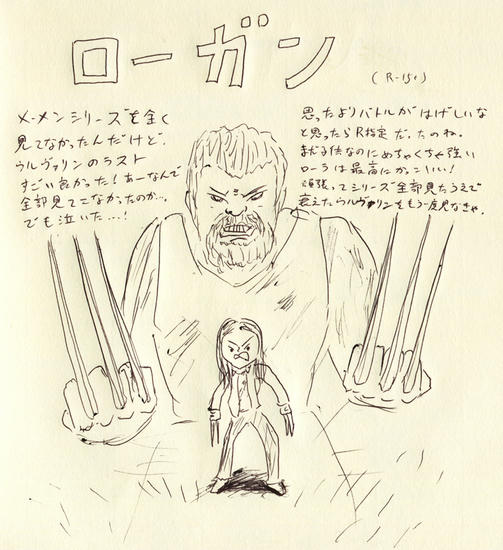 ローガン
(R-15+)
X-メンシリーズを全く
見てなかったんだけど、
ウルヴァリンのラスト
すごい良かった！あーなんで
全部見てこなかったのか…。
でも泣いた…！
思ったよりバトルがはげしいな
と思ったらR指定だったのね。
まだ子供なのにめちゃくちゃ強い
ローラは最高にかっこいい！
頑張ってシリーズ全部見たうえで
衰えたウルヴァリンをもう一度見なきゃ。